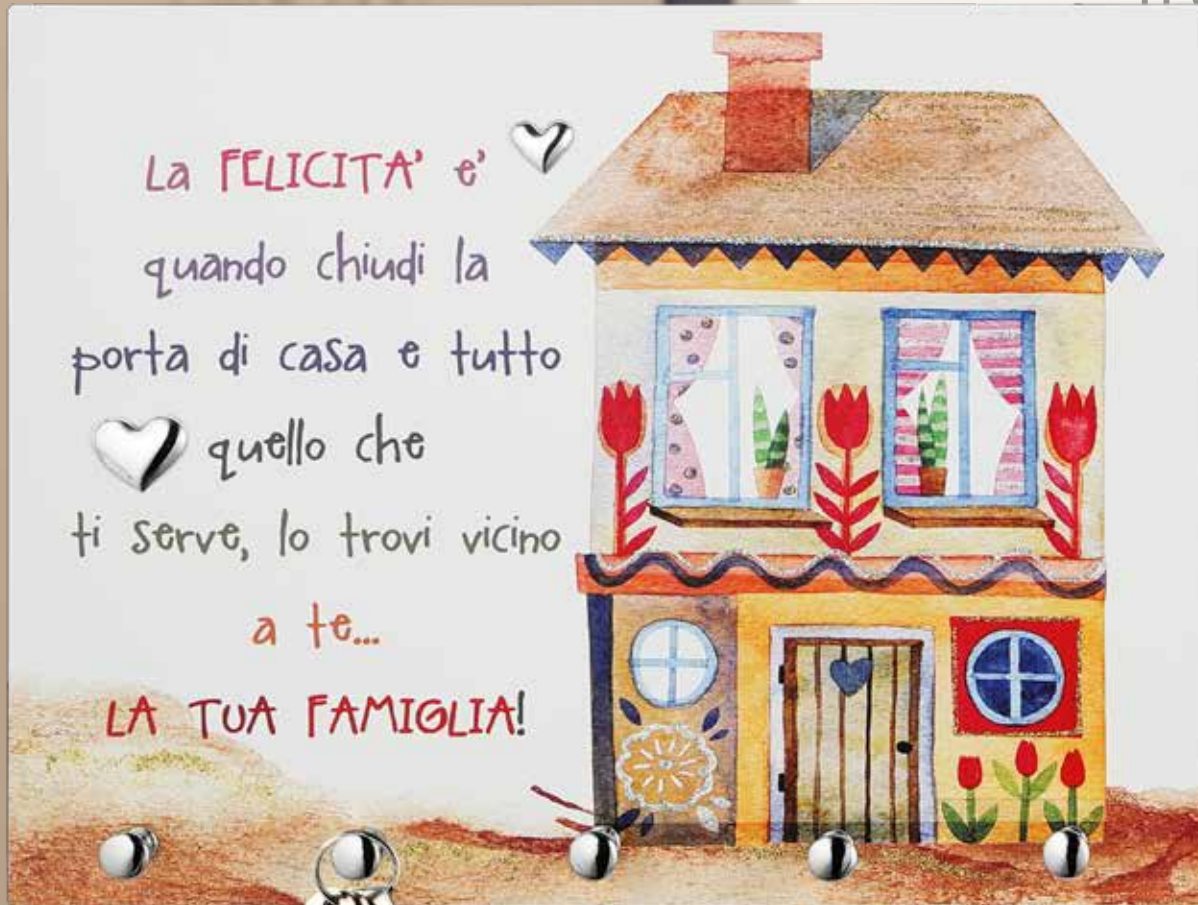 La FELICITA' e'
quando chiudi la
porta di casa e tutto
quello che
ti serve, lo trovi vicino
a te...
LA TUA FAMIGLIA!